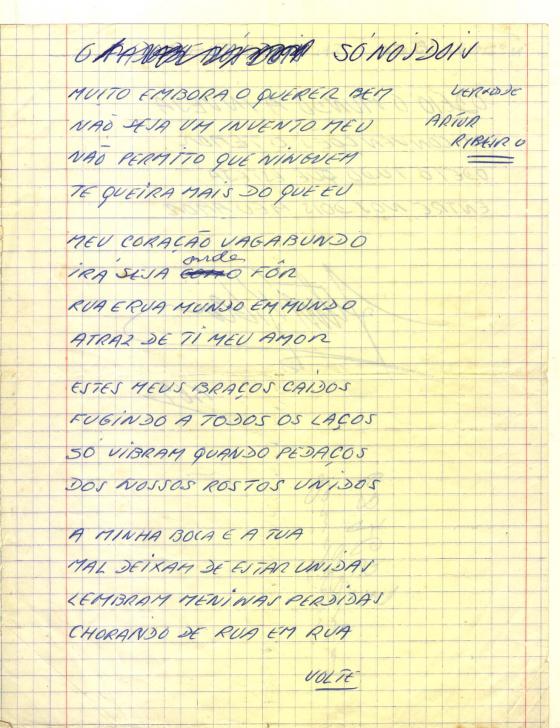 SÓ NÓS DOIS
MUITO EMBORA O QUERER BEM
NÃO SEJA UM INVENTO MEU
NÃO PERMITO QUE NINGUEM
TE QUEIRA MAIS DO QUE EU
VERSOS DE
ARTUR
RIBEIRO
MEU CORAÇÃO VAGABUNDO
IRÁ SEJA onde FÔR
RUA E RUA MUNDO EM MUNDO
ATRAZ DE TI MEU AMOR
ESTES MEUS BRAÇOS CAIDOS
FUGINDO A TODOS OS LAÇOS
SÓ VIBRAM QUANDO PEDAÇOS
DOS NOSSOS ROSTOS UNIDOS
A MINHA BOCA E A TUA
MAL DEIXAM DE ESTAR UNIDAS
LEMBRAM MENINAS PERDIDAS
CHORANDO DE RUA EM RUA
VOLTE